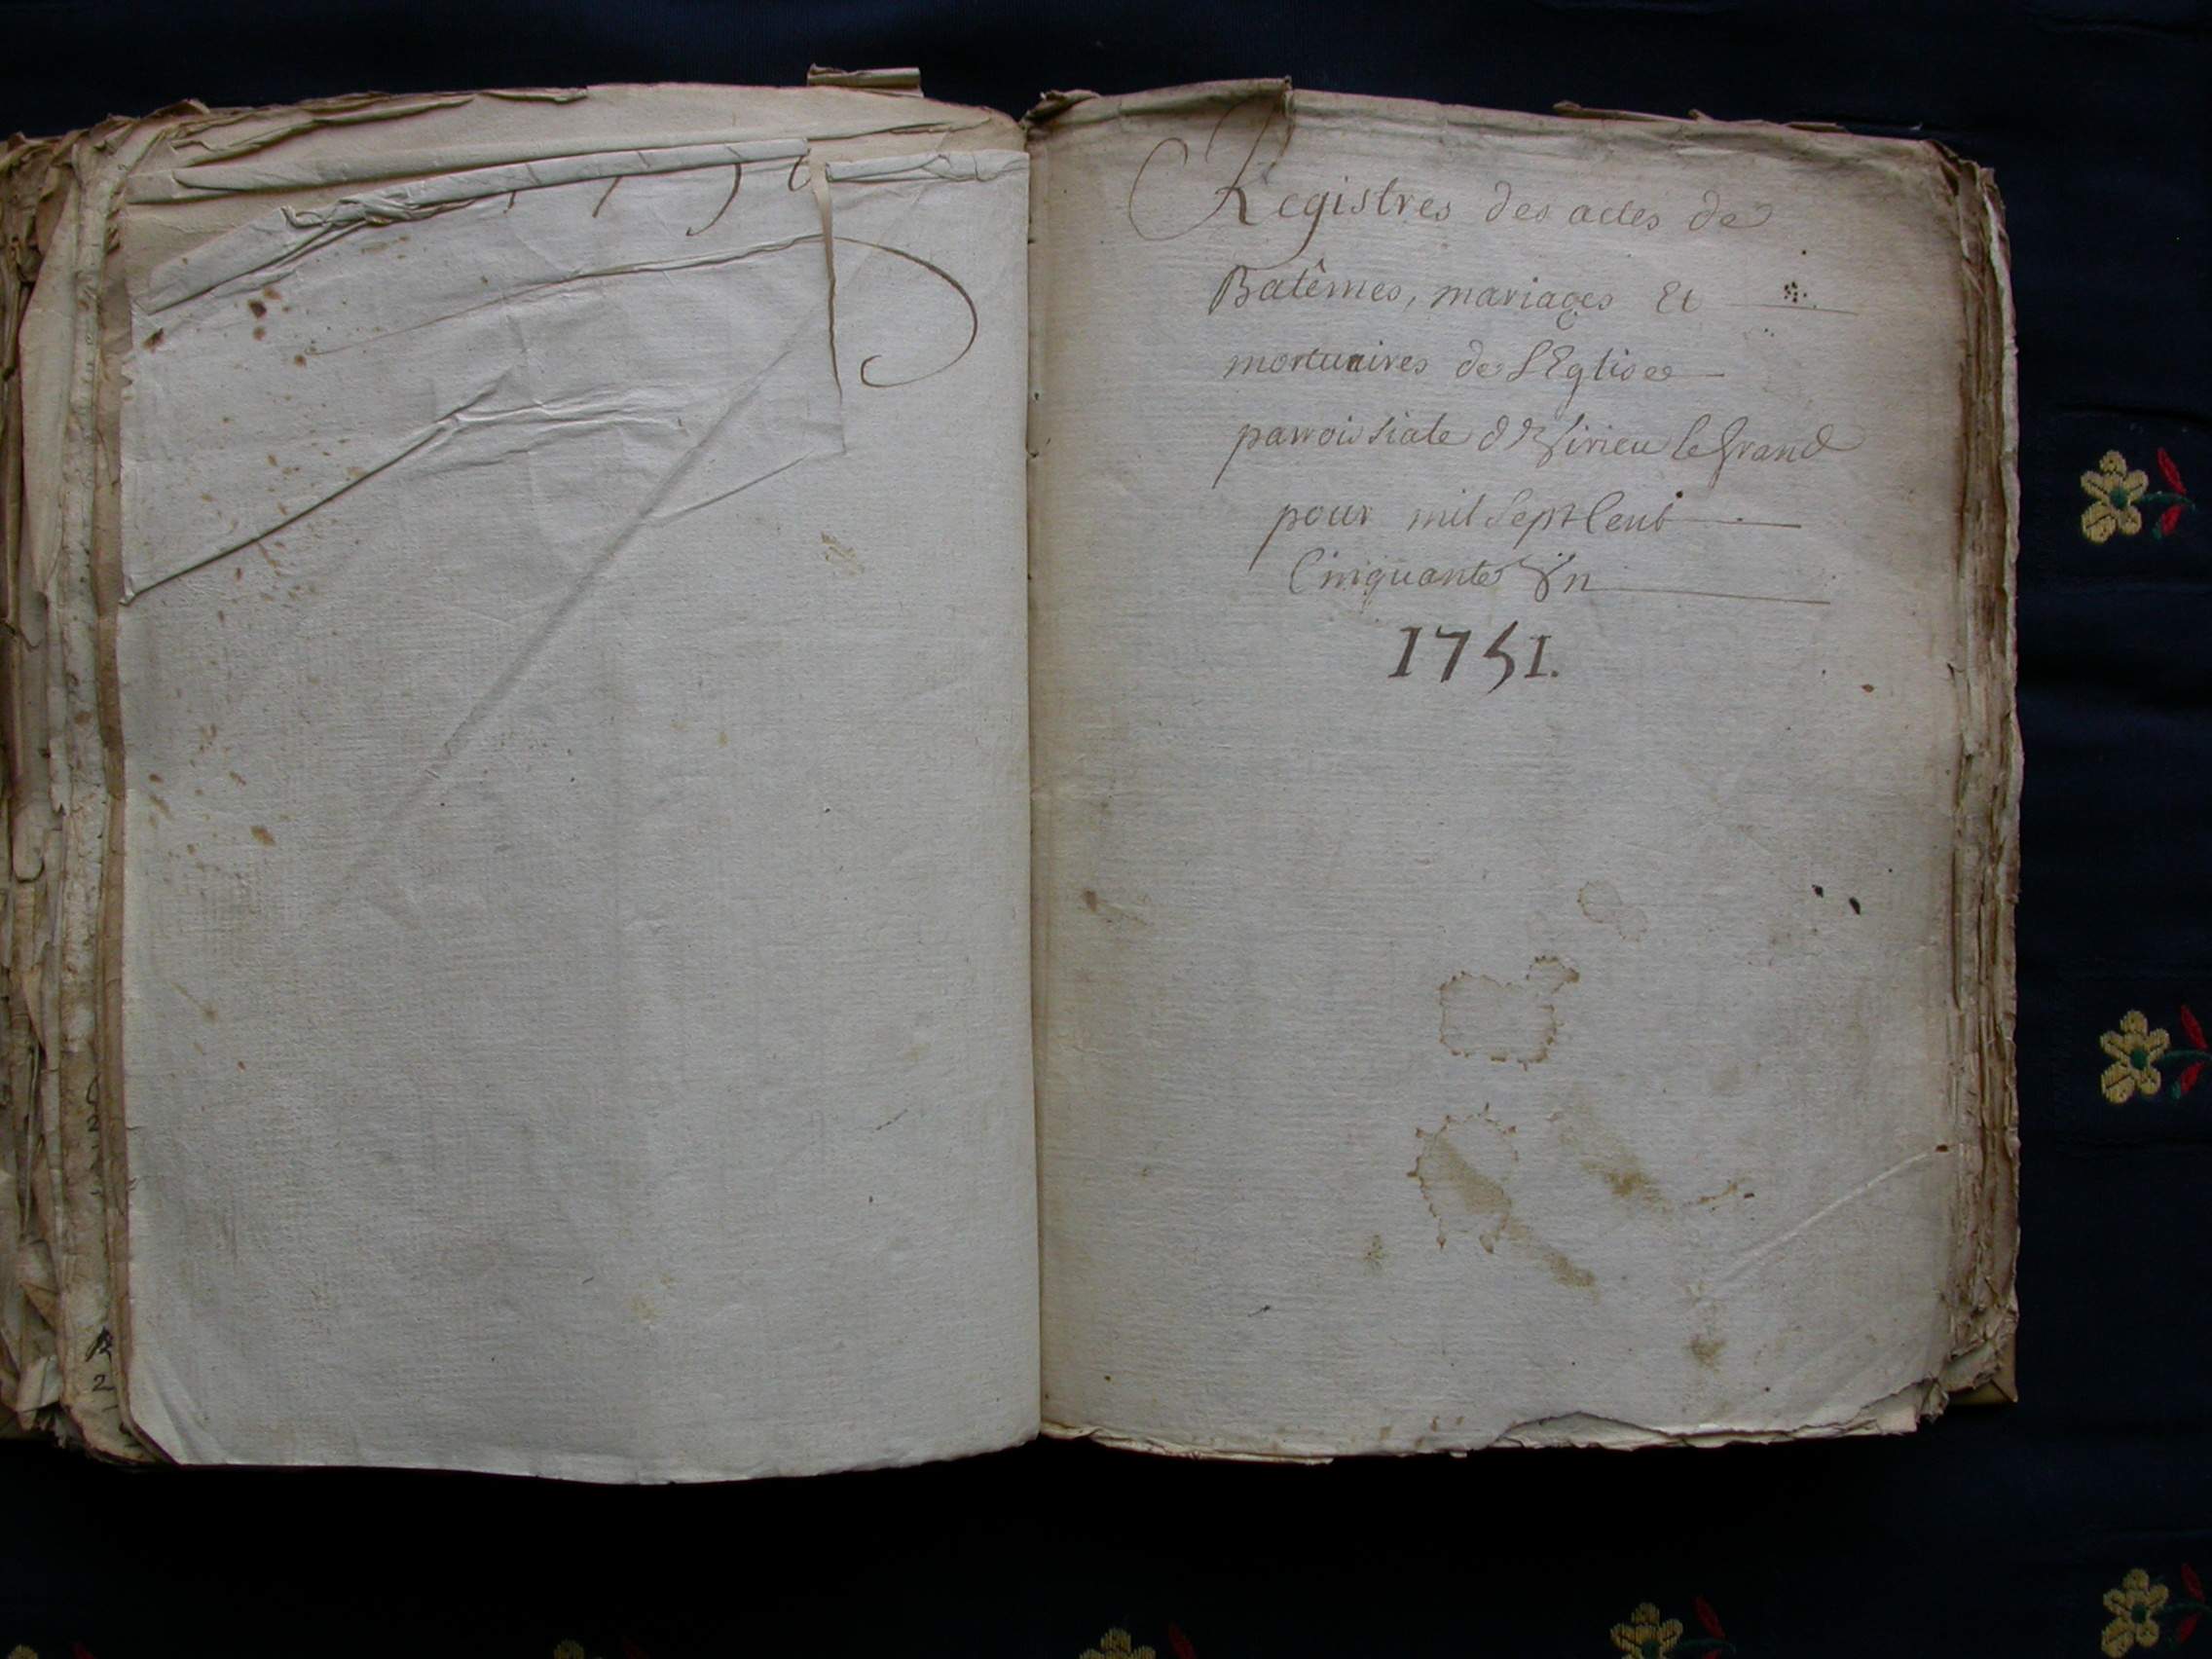 1750
Registres des actes de
Batêmes, mariages Et
mortuaires de L'Eglise
parroissiale de Sirieu le grand
pour mil Sept Cent
Cinquante Un
1751.
2